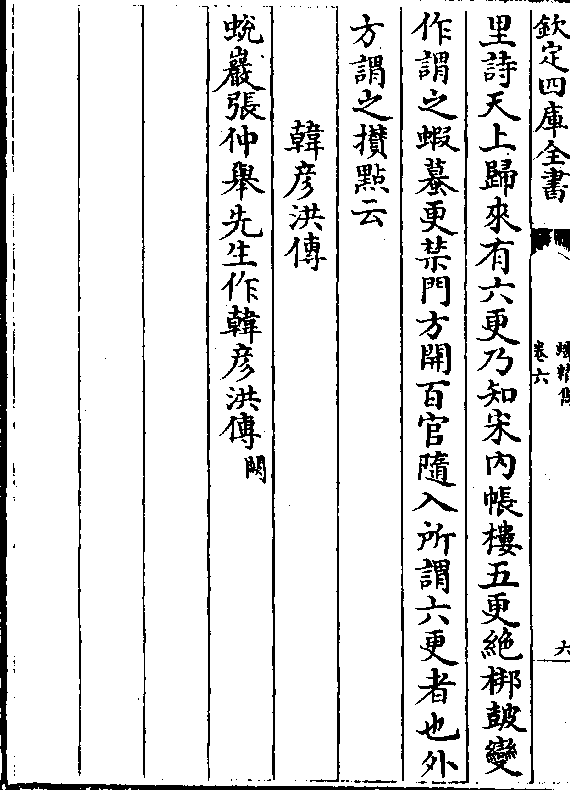 欽定四庫全書
卷六
六
里詩天上歸來有六更乃知宋內帳樓五更絶梆鼓變
作謂之蝦蟇更禁門方開百官隨入所謂六更者也外
方謂之攅點云
韓彦洪傳
蛻巖張仲舉先生作韓彦洪傳闕